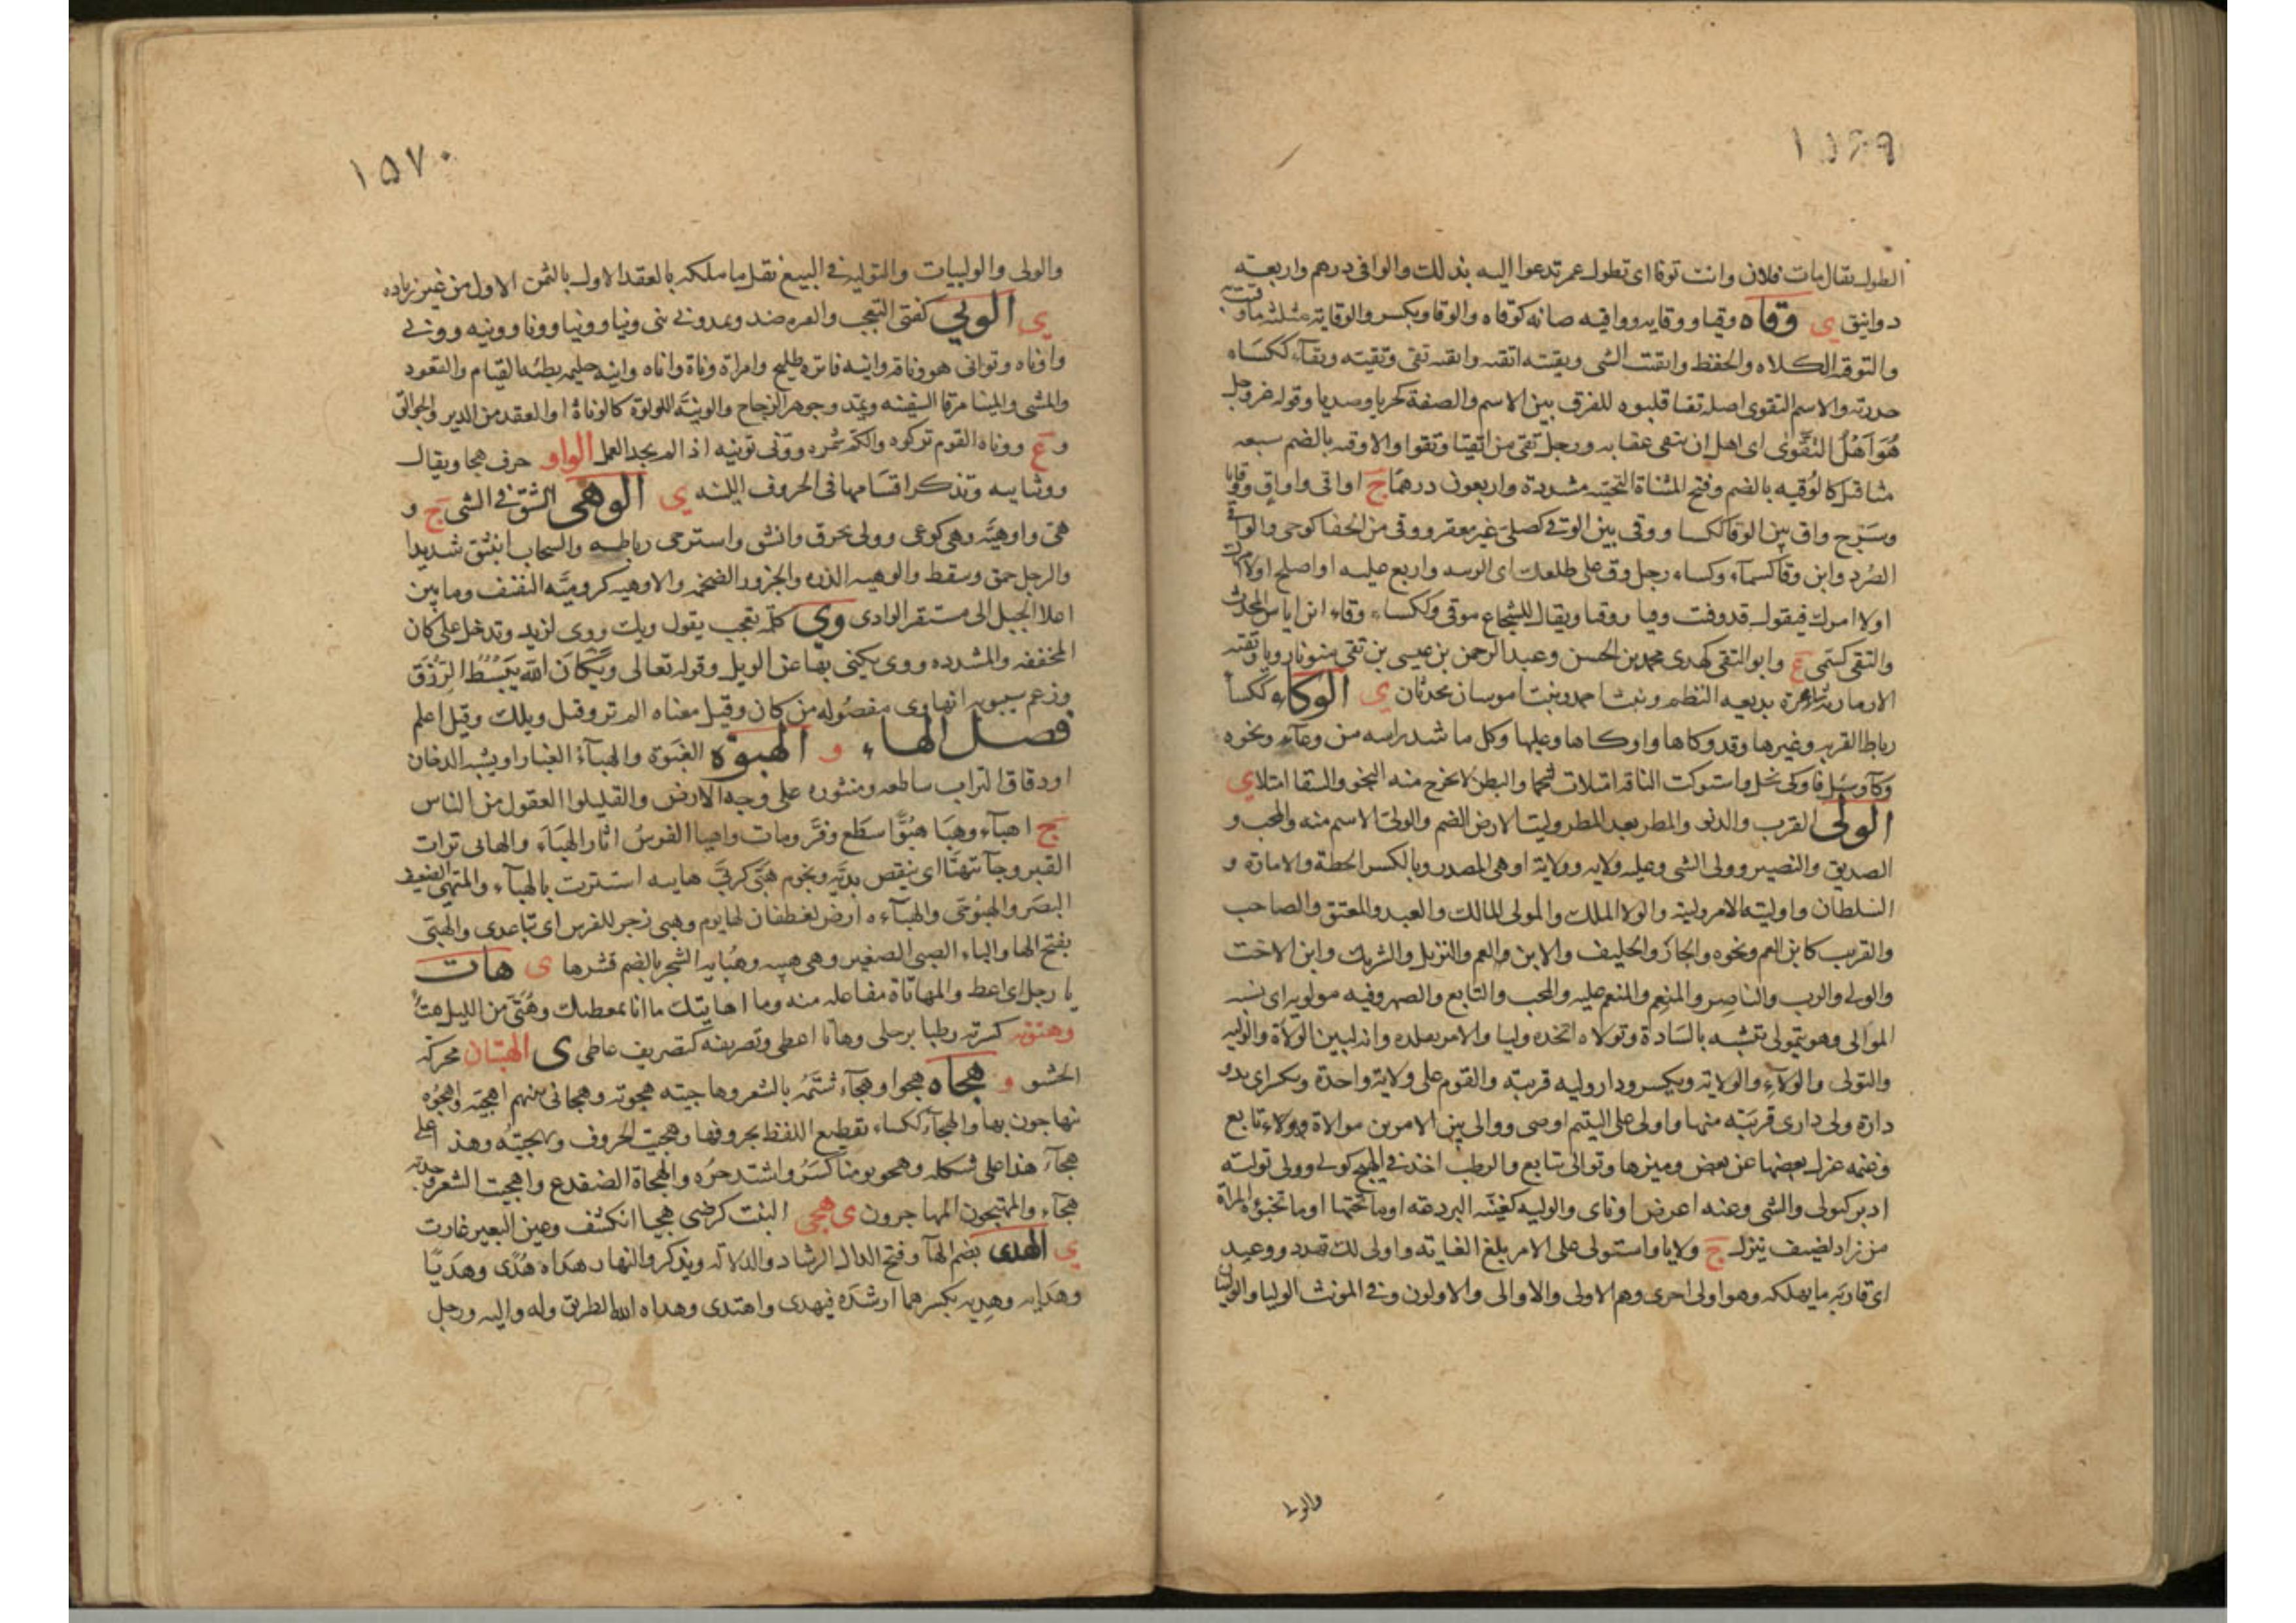 ١٥٦٩
الطول يقال مات فلان وانت توفا اى تطول عمر تدعوا اليه بذلك والوافى درهم واربعة
دوانيق ى وقاه وقيا ووقايه وواقيه صانه كوقاه والوقا ويكسر والوقاية مثلثه ما وقيته
والتوقه الكلاه والحفظ واتقيت الشى وتقيته اتقيه واتقيه تقى وتقيته وتقآء ككساء
حذرته والاسم التقوى اصله تقيا قلبوه للفرق بين الاسم والصفة كخزيا وصديا وقوله عز وجل
هُوَ اَهْلُ التَّقْوٰى اى اهل ان يتقى عقابه ورجل تقى من اتقيا وتقوا والاوقيه بالضم سبعه
مثاقيل كالوُقيه بالضم وفتح المثناة التحتيه مشددة واربعون درهمًا ج اواقى واواقٍ ووقايا
وسرج واق بين الوقا ككسا ووقى بين الوقى كصلى غير معقر ووقى من الحفا كوجى والواقى
الصُرد وابن وقا كسمآء وكساء رجل وق على ظلعك اى الزمه واربع عليه او اصلح اولا امرك
اولا امرك فيقول قد وقيت وقيا ووقيا ويقال للشجاع موقى وككساء وقاء ابن اياس المحدث
والتقى كسمى ع وابو التقى كهدى محمد بن الحسن وعبد الرحمن بن عيسى بن تقى منونا رويا وتقيه
الارمازيه شاعرة بديعه النظم وبنت احمد وبنت اموسان يحدثان ى الوكاء ككسا
رباط القربه وغيرها وقد وكاها واوكاها وعليها وكل ما شد راسه من وعآء ونحوه
وكآء وسُئل فاوكى بخل واستوكت الناقه امتلات شحما والبطن لا يخرج منه النجو والسقا امتلا ى
الولى القرب والدنو والمطر بعد المطر وليت الارض بالضم والولى الاسم منه والمحب و
الصديق والنصير وولى الشى وعليه ولايه وولاية او هى المصدر وبالكسر الخطة والامارة و
السلطان واوليته الامر وليته والولا الملك والمولى المالك والعبد والمعتق والصاحب
والقريب كابن العم ونحوه والجار والحليف والابن والعم والنزيل والشريك وابن الاخت
والولى والرب والناصر والمنعِم والمنعم عليه والمحب والتابع والصهر وفيه مولويه اى يشبه
الموالى وهو يتمولى يتشبه بالسادة وتولاه اتخده وليا والامر تقلده وانه لبين الولاة والوليه
والتولى والولآء والولاية ويكسر ودار وليه قريبة والقوم على ولاية واحدة ويكسر اى يد و
دارة ولى دارى قريبَته منها واولى على اليتيم اوصى ووالى بين الامرين موالاة وولاء تابع
وغنمه عزل بعضها عن بعض وميزها وتوالى تتابع والرطب اخذ فى الهيج كولى وولى توليه
ادبر كتولى والشى وعنه اعرض او ناى والوليه كغنيّه البردعه او ما تحتها او ما تخبؤه المراة
من زاد لضيف ينزل ج ولايا واستولى على الامر بلغ الغايه واولى لك تهدد ووعيد
اى قاربه ما يهلكه وهو اولى احرى وهم الاولى والاوالى والاولون وفى المونث الوليا والوليان
والولى
١٥٧٠
والولى والوليات والتوليه فى البيع نقل ما ملكه بالعقد الاول بالثمن الاول من غير زياده
ى الونى كفتى التعب والفتره ضد ويمد ونى ينى ونيا وونيا وونا وونيه وونى
واوناه وتوانى هو وناة وانيه فاتره طليح وامراة وناة واناه وانيه حليمه بطيئه القيام والقعود
والمشى والمينا مرفا السفينه ويمد وجوهر الزجاج والونيَّه اللولوة كالوناة او العقد من الدر والجوالق
و ع ووناه القوم تركوه والكم شمره وونى تونيه اذا لم يجد العمل الواو حرف هجا ويقال
ووثنايه وتذكر اقسَامها فى الحروف اللينه ى الوهى الشق فى الشى ج و
هى واوهيَّه وهى كوعى وولى تخرق وانشق واسترخى رباطه والسحاب انبثق شديدا
والرجل حمق وسقط والوهيه الدره والجزور الضخمه والاوهيه كروميَّه النفنف وما بين
اعلا الجبل الى مستقر الوادى وى كلمة تعجب يقول ويك ووى لزيد وتدخل على كان
المخففه والمشدده ووى يكنى بها عن الويل وقوله تعالى وَيْكَاَنَ اللّٰه يَبْسُطُ الرِّزْقَ
وزعم سيبويه انها وى مفصُوله من كان وقيل معناه الم تر وقيل ويلك وقيل اعلم
فصل الهاء و الهبوه الغبَرة والهبآءُ الغبار او يشبه الدخان
او دقاق التراب ساطعه ومنثوره على وجه الارض والقليلوا العقول من الناس
ج اهبآء وهبَا هبُوًّا سَطَع وفرَّ ومات واهبا الفرسُ اثار الهبَآءَ والهابى تراب
القبر وجآ يتهبَّا اى ينفض يديه ونجوم هُبَّى كربَّى هابيه استترت بالهبآء والمتهبى الضعيف
البصَر والهبُو حَى والهبآءه ارض لغطفان لها يوم وهبى زجر للفرس اى تباعدى والهبَى
بفتح الها والباء الصبى الصغير وهى هبيه وهُبايه الشجر بالضم قشرها ى هات
يا رجل اى اعط والمهاتاة مفاعله منه وما اهاتيك ما انا بمعطيك وهُتَى من الليل هت
وهتوته كسرته وطيا برجلى وهاتا اعطى وتصريفه كتصريف عاطى ى الهثيان محركة
الحثو و هجاه هجوا وهجآء شتمَهُ بالشعر وهاجيته هجوته وهجانى بينهم اهجيّه واهجوّه
يتهاجون بها والهجآء ككساء تقطيع اللفظ بحروفها وهجيت الحروف وتهجيتُه وهذا على
هجآء هذا على شكله وهجو يومنا كسَرُو اشتد حرُه والهجاة الضفدع واهجيت الشعر وجدته
هجآء والمهتجون المهاجرون ى هجى البيت كرضى هجيا انكشف وعين البعير غارت
ى الهدى بضم الهآ وفتح الدال الرشاد والدلاله ويذكر والنهار هداه هُدًى وهَديًا
وهدَايه وهِديه بكسرهما ارشدَه فهدى واهتدى وهداه الله الطريق وله واليه ورجل